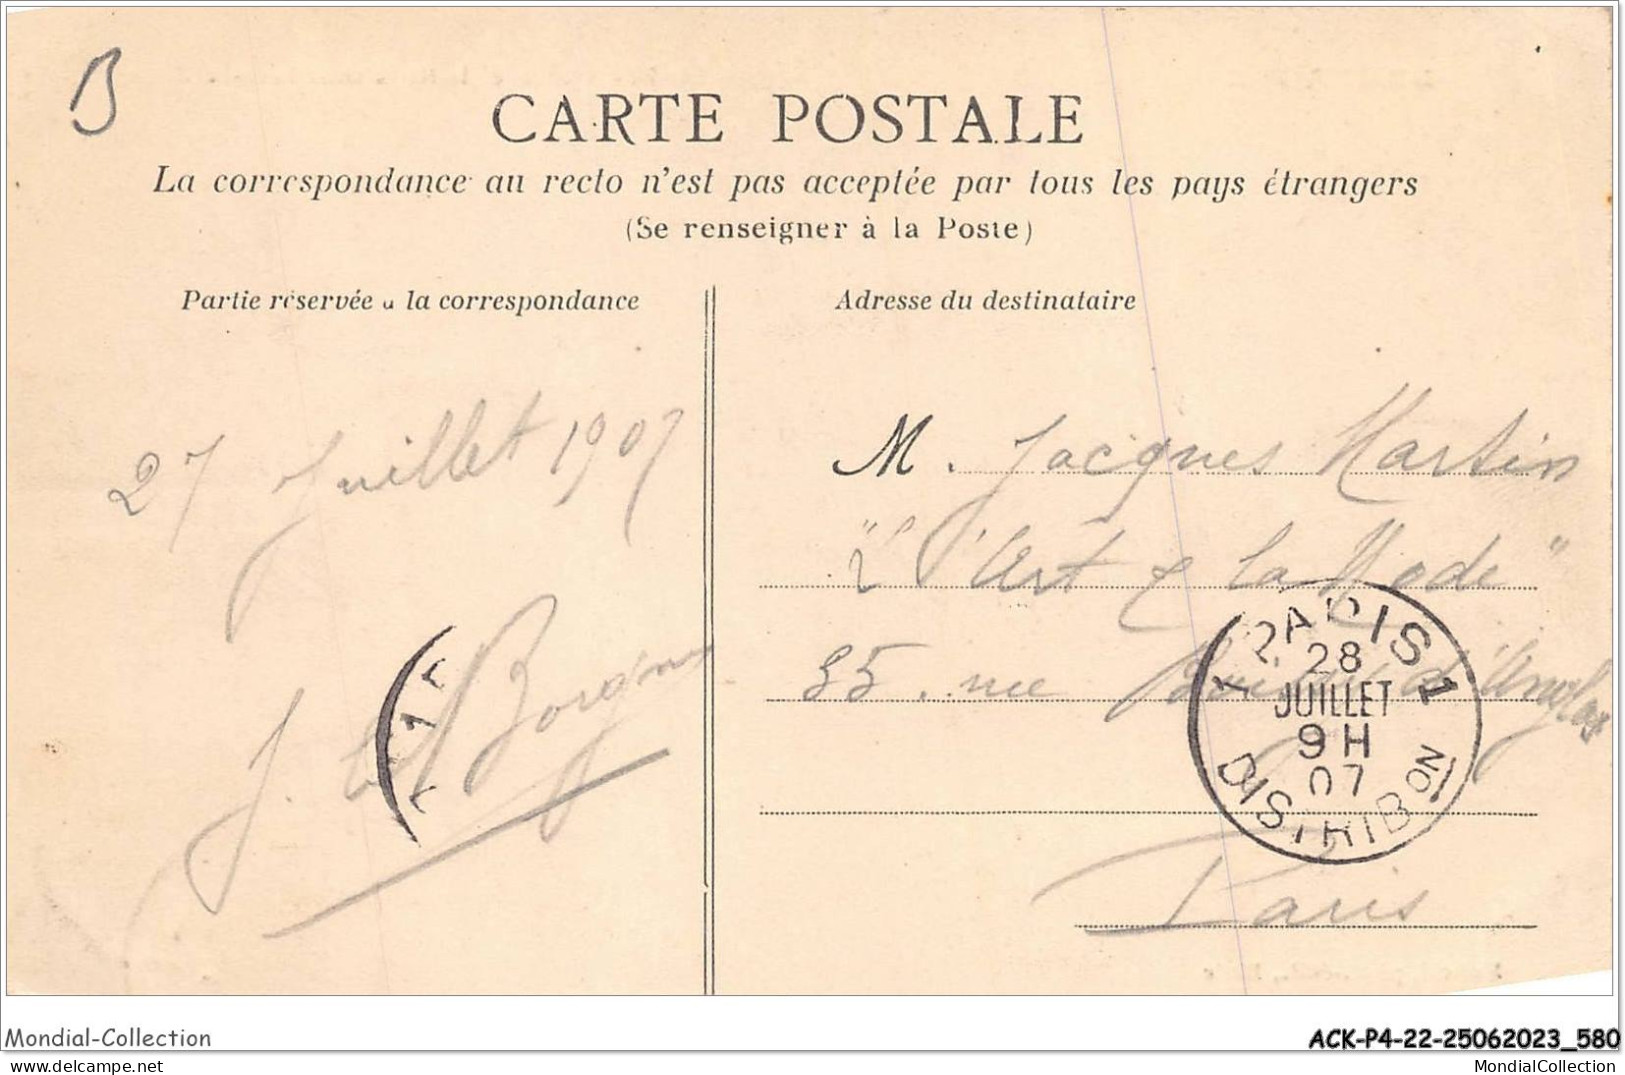 B
CARTE POSTALE
La correspondance au recto n'est pas acceptée par tous les pays étrangers
(Se renseigner à la Poste)
Partie réservée à la correspondance
Adresse du destinataire
27 Juillet 1907
J. Le Borgne
M. Jacques Martin
"L'Art & la Mode"
35. rue Boissy d'Anglas
Paris
PARIS 1
28
JUILLET
9 H
07
DISTRIBON
Mondial-Collection
ACK-P4-22-25062023_580
MondialCollection